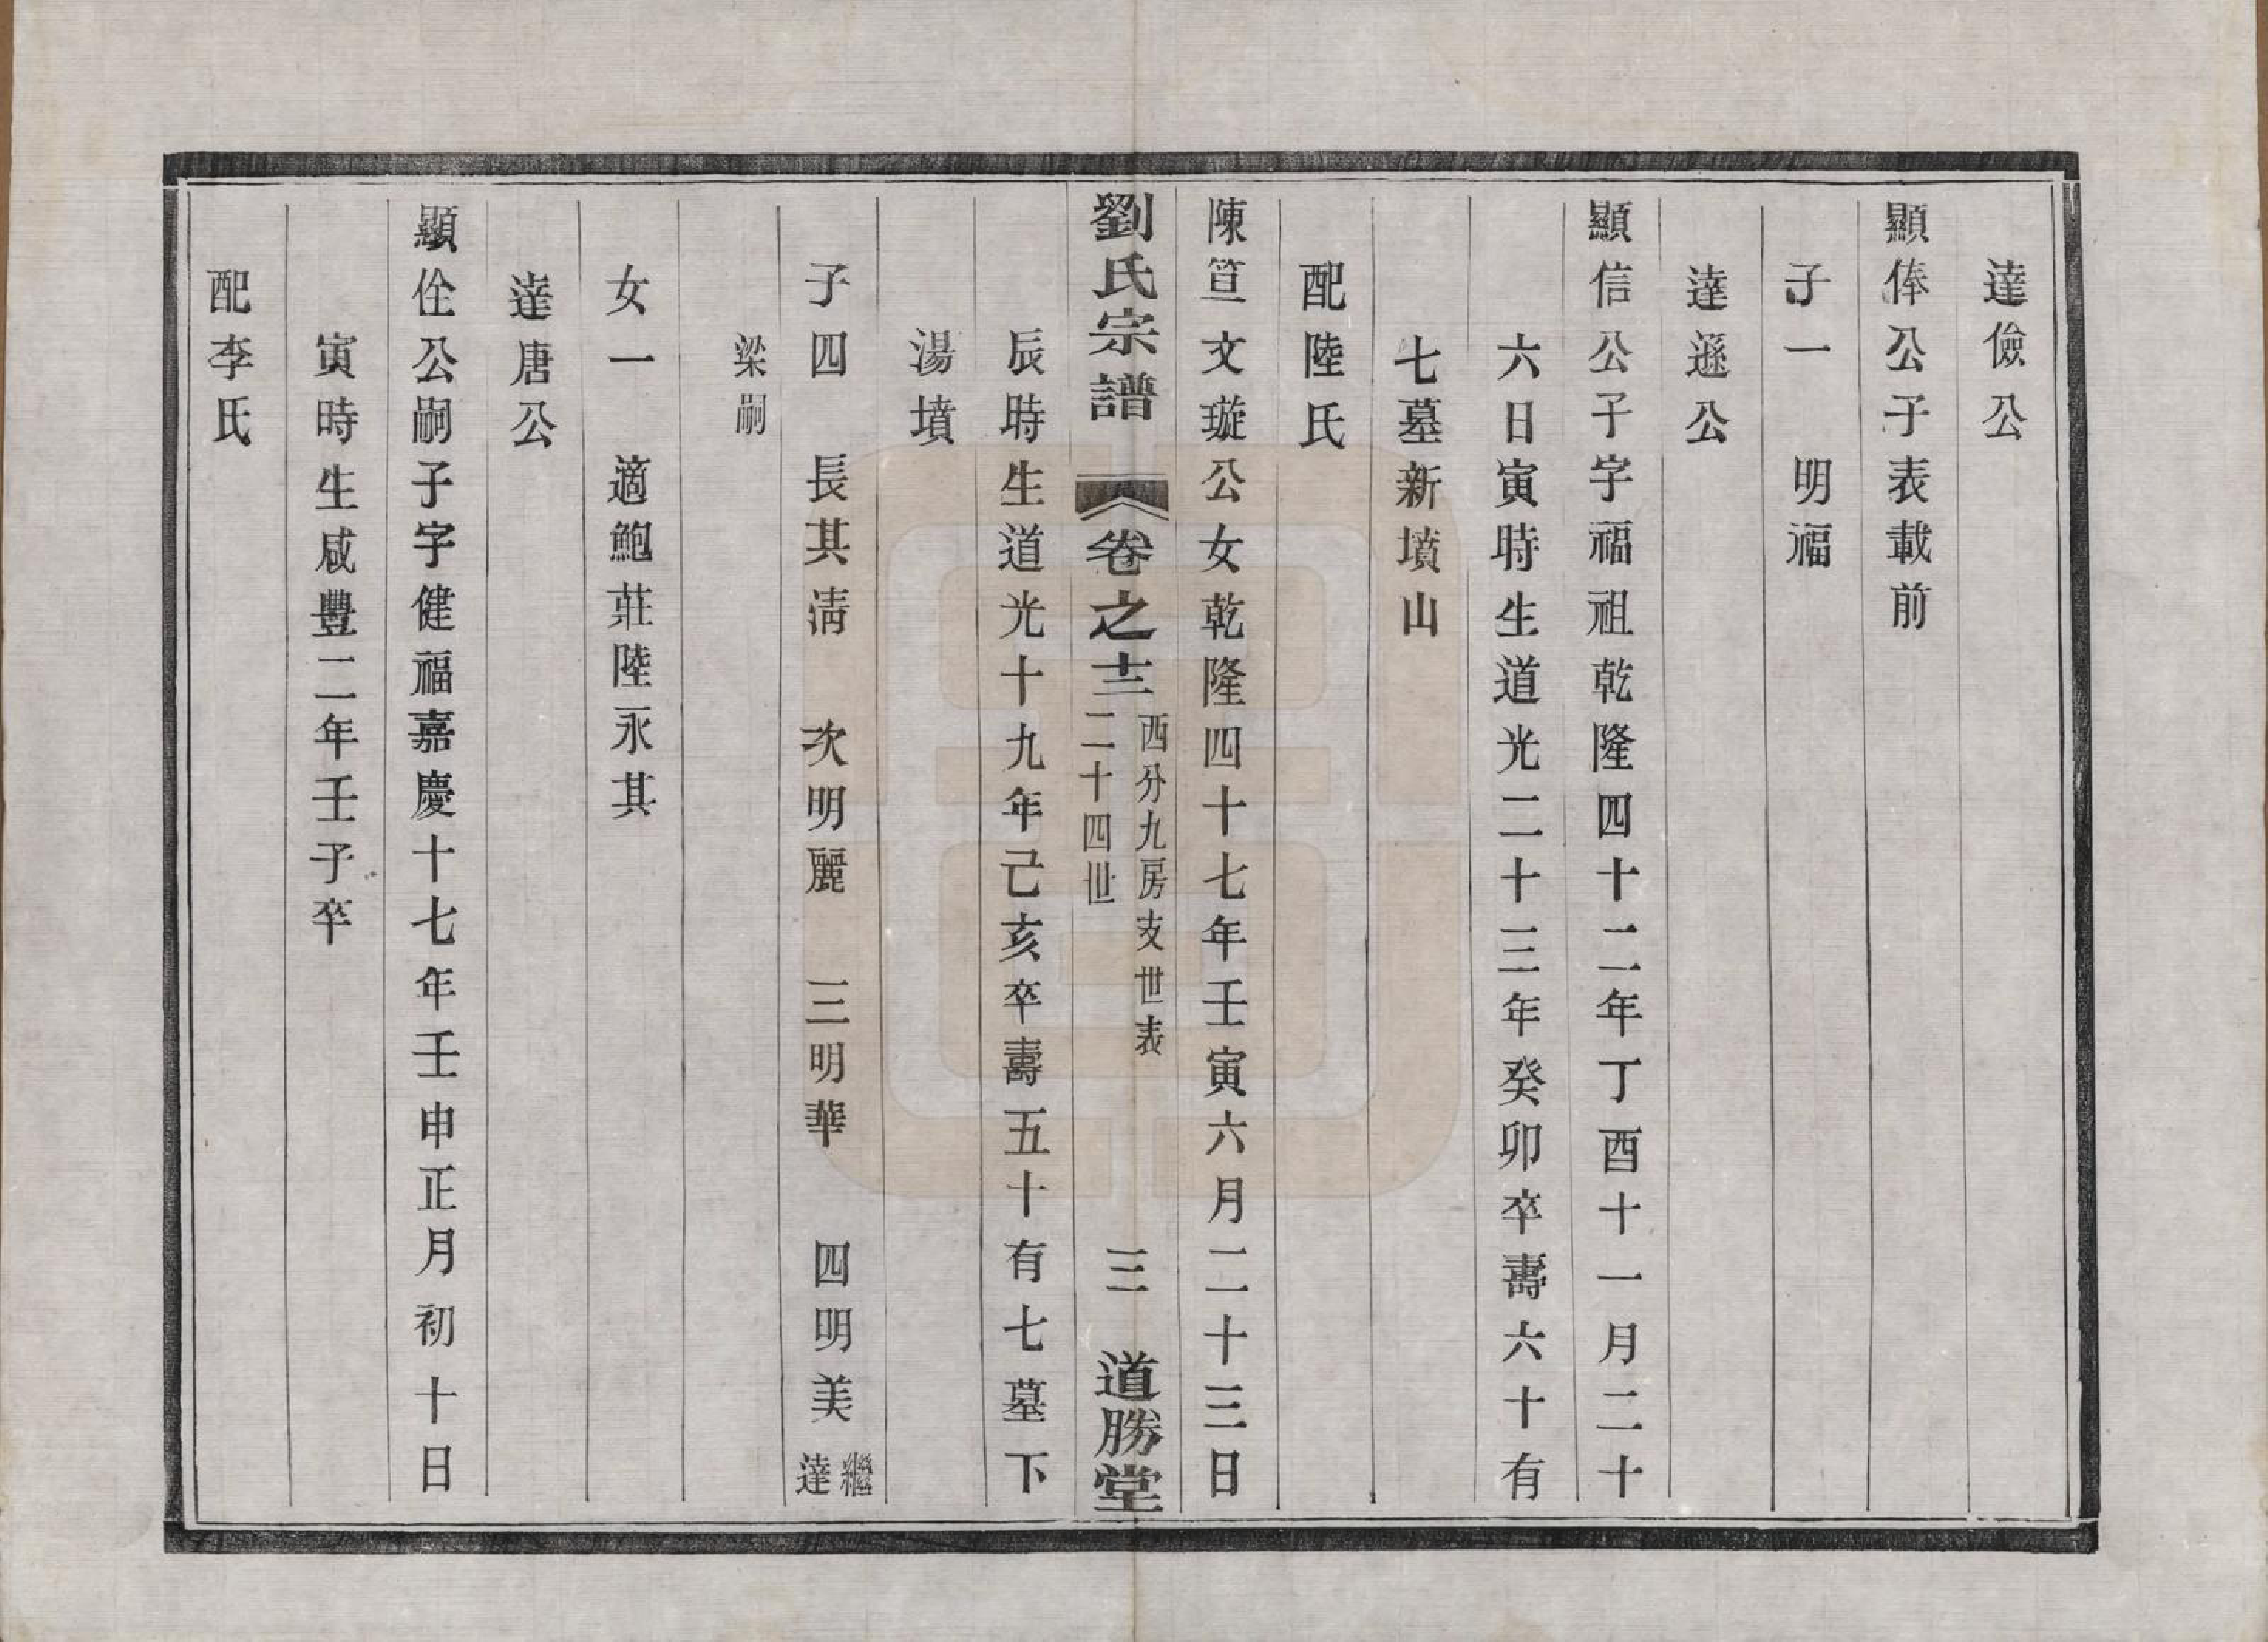 達儉公
顯俸公子表載前
子一　明福
達遜公
顯信公子字福祖乾隆四十二年丁酉十一月二十
六日寅時生道光二十三年癸卯卒壽六十有
七墓新墳山
配陸氏
陳笪文璇公女乾隆四十七年壬寅六月二十三日
劉氏宗譜　卷之十三　西分九房支世表　二十四世　三　道勝堂
辰時生道光十九年己亥卒壽五十有七墓下
湯墳
子四　長其清　次明麗　三明華　四明美　繼達
梁嗣
女一　適鮑莊陸永其
達唐公
顯佺公嗣子字健福嘉慶十七年壬申正月初十日
寅時生咸豐二年壬子卒
配李氏